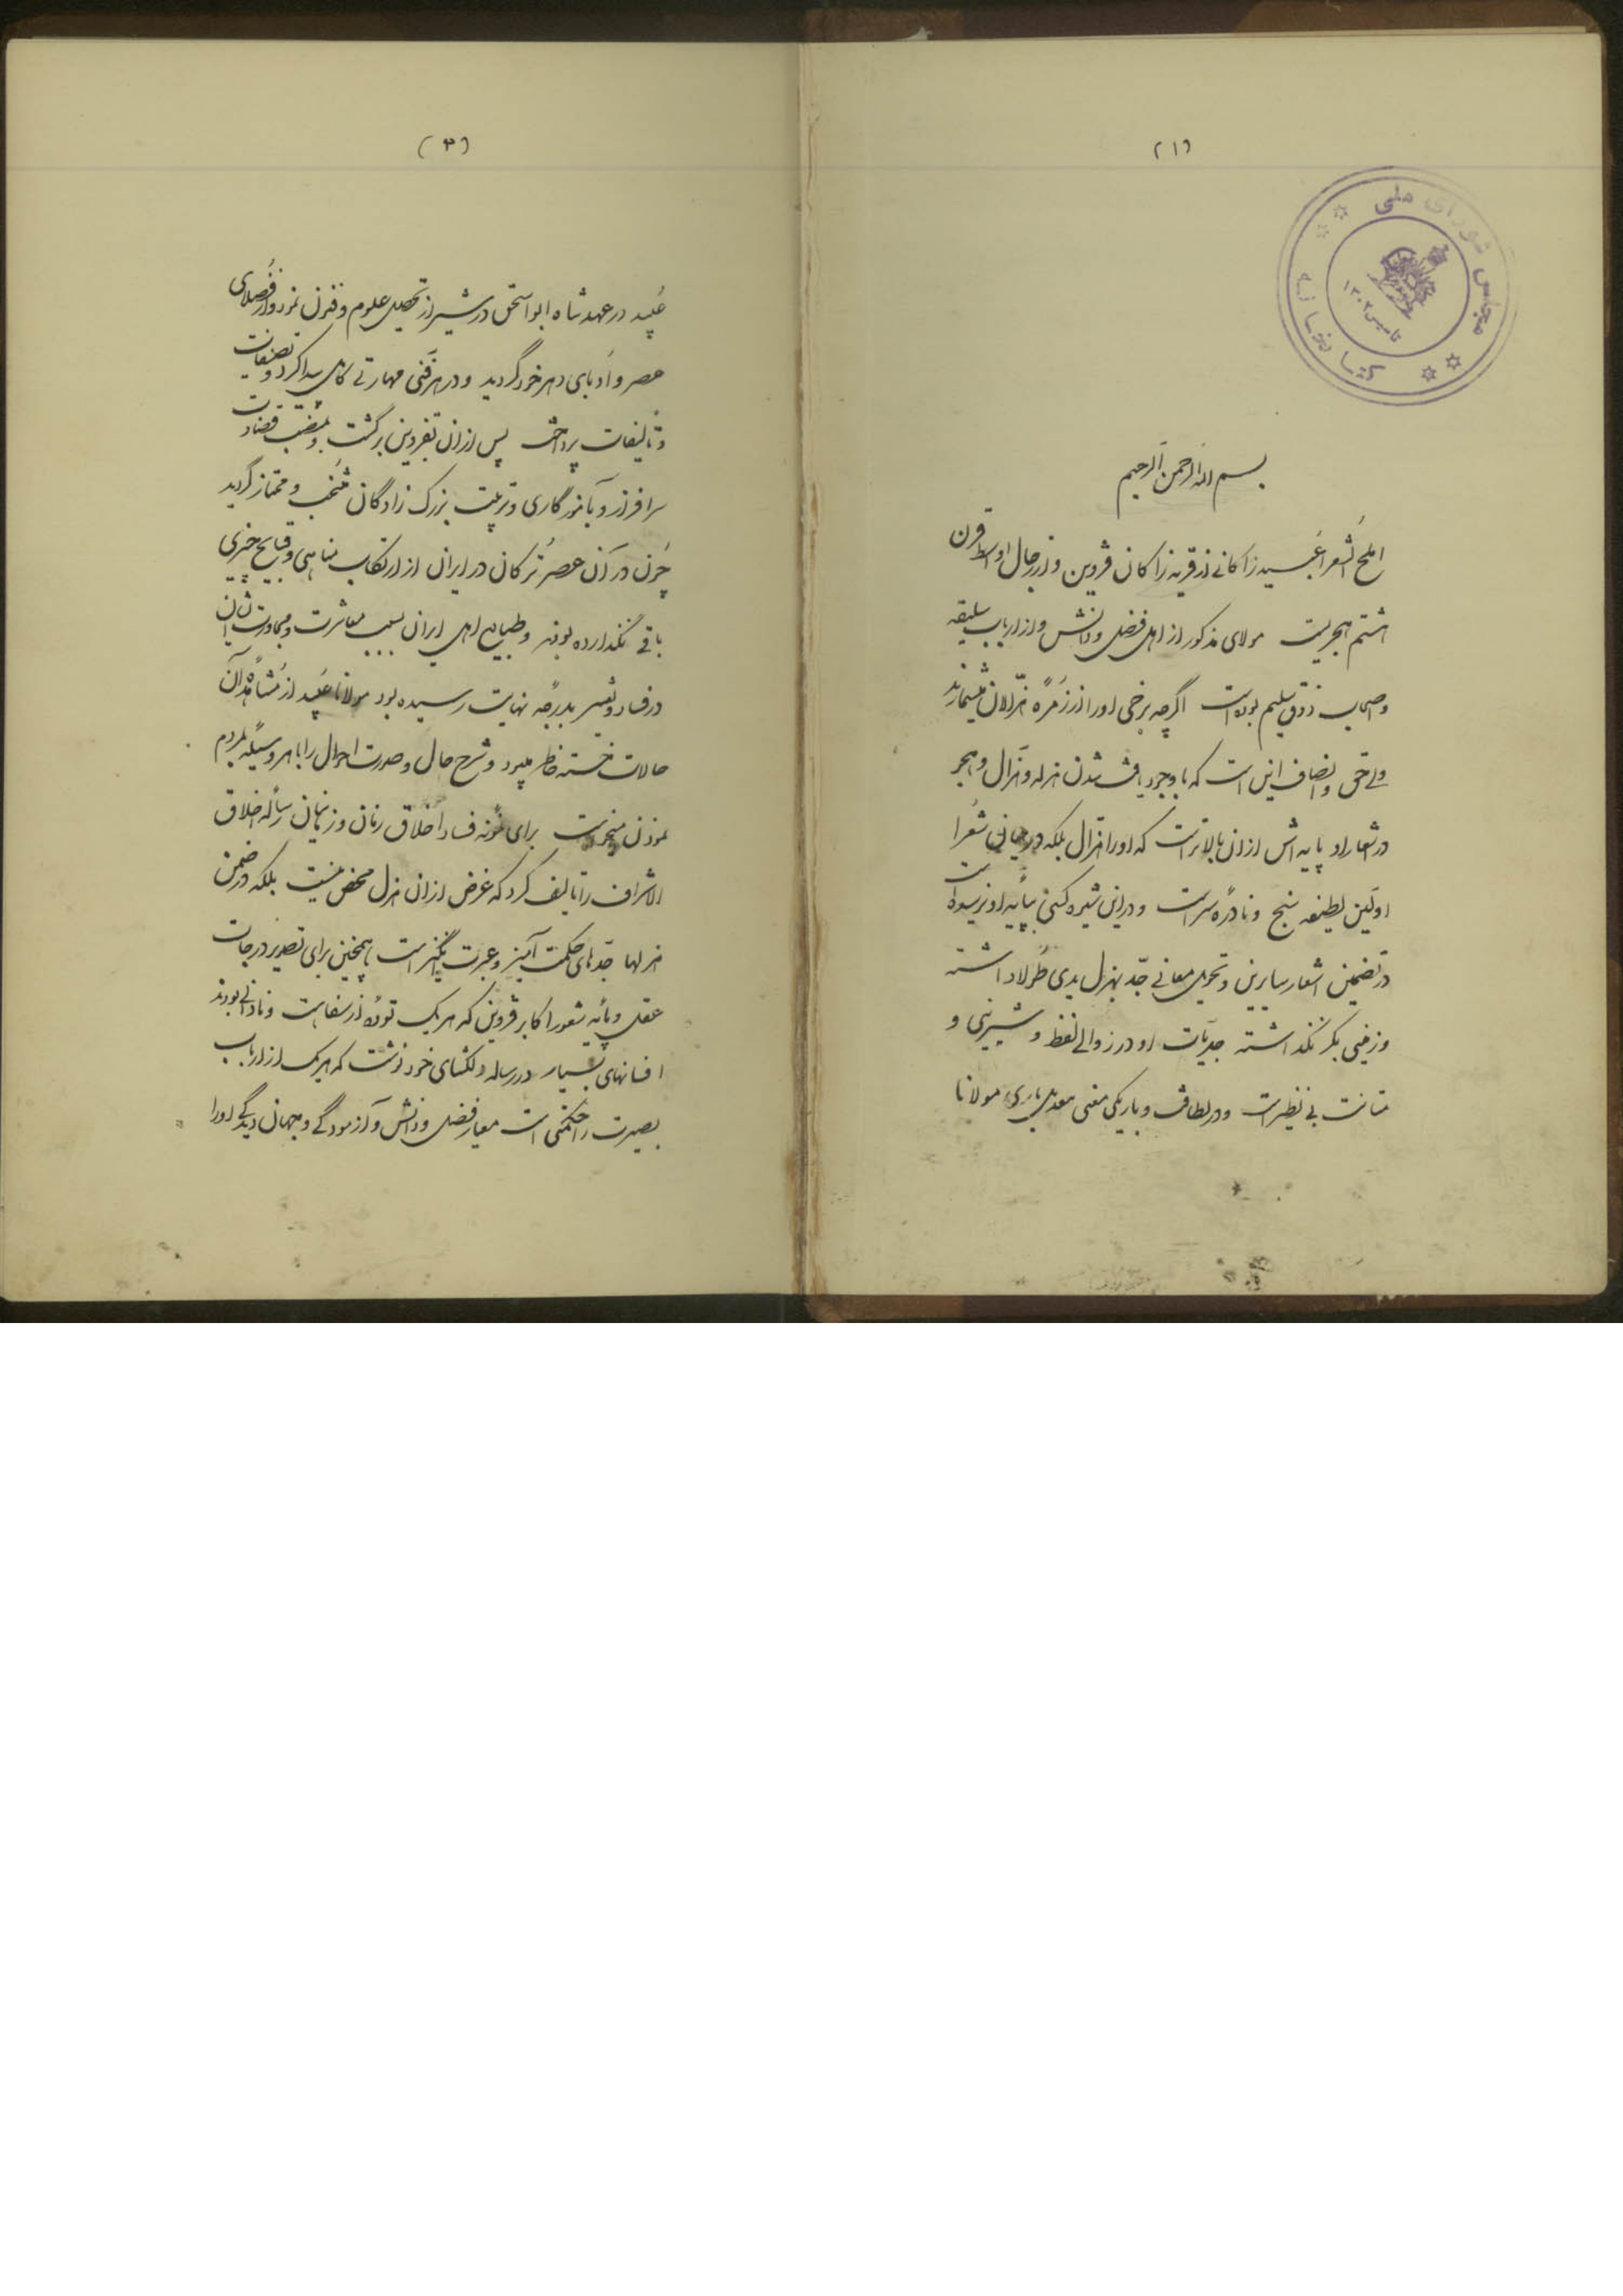 (۱)
مجلس شورای ملی
کتابخانه
تاسیس ۱۳۰۲
بسم الله الرحمن الرحیم
املح الشعرا عبید زاکانی از قریه زاکان قزوین و از رجال اواسط قرن
هشتم هجریست مولای مذکور از اهل فضل و دانش و از ارباب سلیقه
و اصحاب ذوق سلیم بوده است اگرچه برخی او را از زمرهٔ هزّالان میشمارند
ولی حق و انصاف این است که با وجود یافت شدن هزلها و هزال و هجو
در اشعار او پایه اش از آن بالاتر است که او را هزال بلکه در میان شعرا
اولین لطیفه سنج و نادره سراست و در این شیوه کسی بپایه او نرسیده است
در تضمین اشعار سایرین و تحویل معانی جدّ بهزل یدی طولا داشته
و زمینی بکر نگذاشته جدیّات او در روانی لفظ و شیرینی و
متانت بی نظیر است و در لطافت و باریکی معنی مولانا
(۳)
عُبید در عهد شاه ابواسحق در شیراز تحصیل علوم و فنون نمود و از فُضلای
عصر و اُدبای دهر خود گردید و در هر فنّی مهارتی کامل پیدا کرد و تصنیفات
و تألیفات پرداخت پس از آن بقزوین برگشت و بمنصب قضاوت
سرافراز و بآموزگاری و تربیت بزرک زادگان منتخب و ممتاز گردید
چُون در آن عصر تُرکان در ایران از ارتکاب مناهی و قبایح چیزی
باقی نگذارده بودند و طبایع اهل ایران بسبب معاشرت و مجاورت ایشان
در فساد و تغییر بدرجه نهایت رسیده بود مولانا عُبید از مُشاهده آن
حالات خسته خاطر میبود و شرح حال و صورت احوال را با هر وسیله بمردم
نمودن میخواست برای نمونه فساد اخلاق زمان و زمانیان رساله اخلاق
الاشراف را تألیف کرد که غرض از آن هزل محض نیست بلکه در ضمن
هزلها جدّهای حکمت آمیز و عبرت انگیز است همچنین برای تصویر درجات
عقل و پایه شعور اکابر قزوین که هر یک تودهٔ از سفاهت و نادانی بودند
افسانهای بسیار در رساله دلگشای خود نوشت که هر یک از ارباب
بصیرت را حکمتی است معیار فضل و دانش و آزمودگی و جهان دیدگی او را